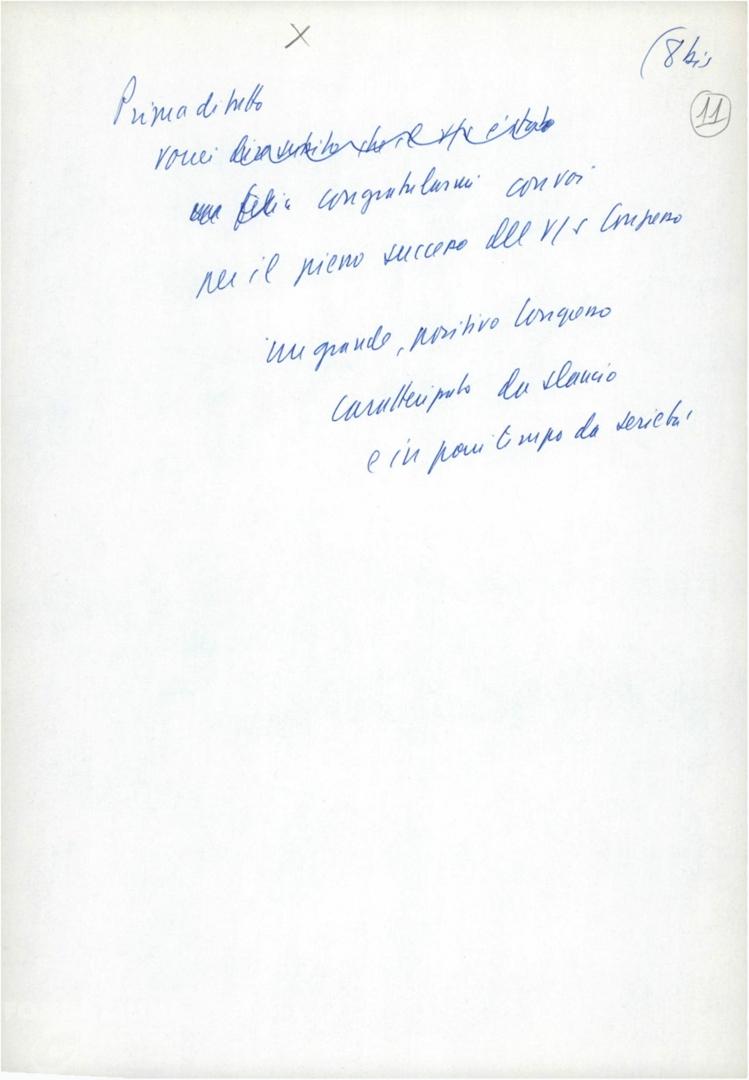 X
(8 bis
11
Prima di tutto
vorrei dire subito che il v/s è stato
una felic congratularmi con voi
per il pieno successo del v/s Congresso
un grande, positivo Congresso
caratterizzato da slancio
e in pari tempo da serietà